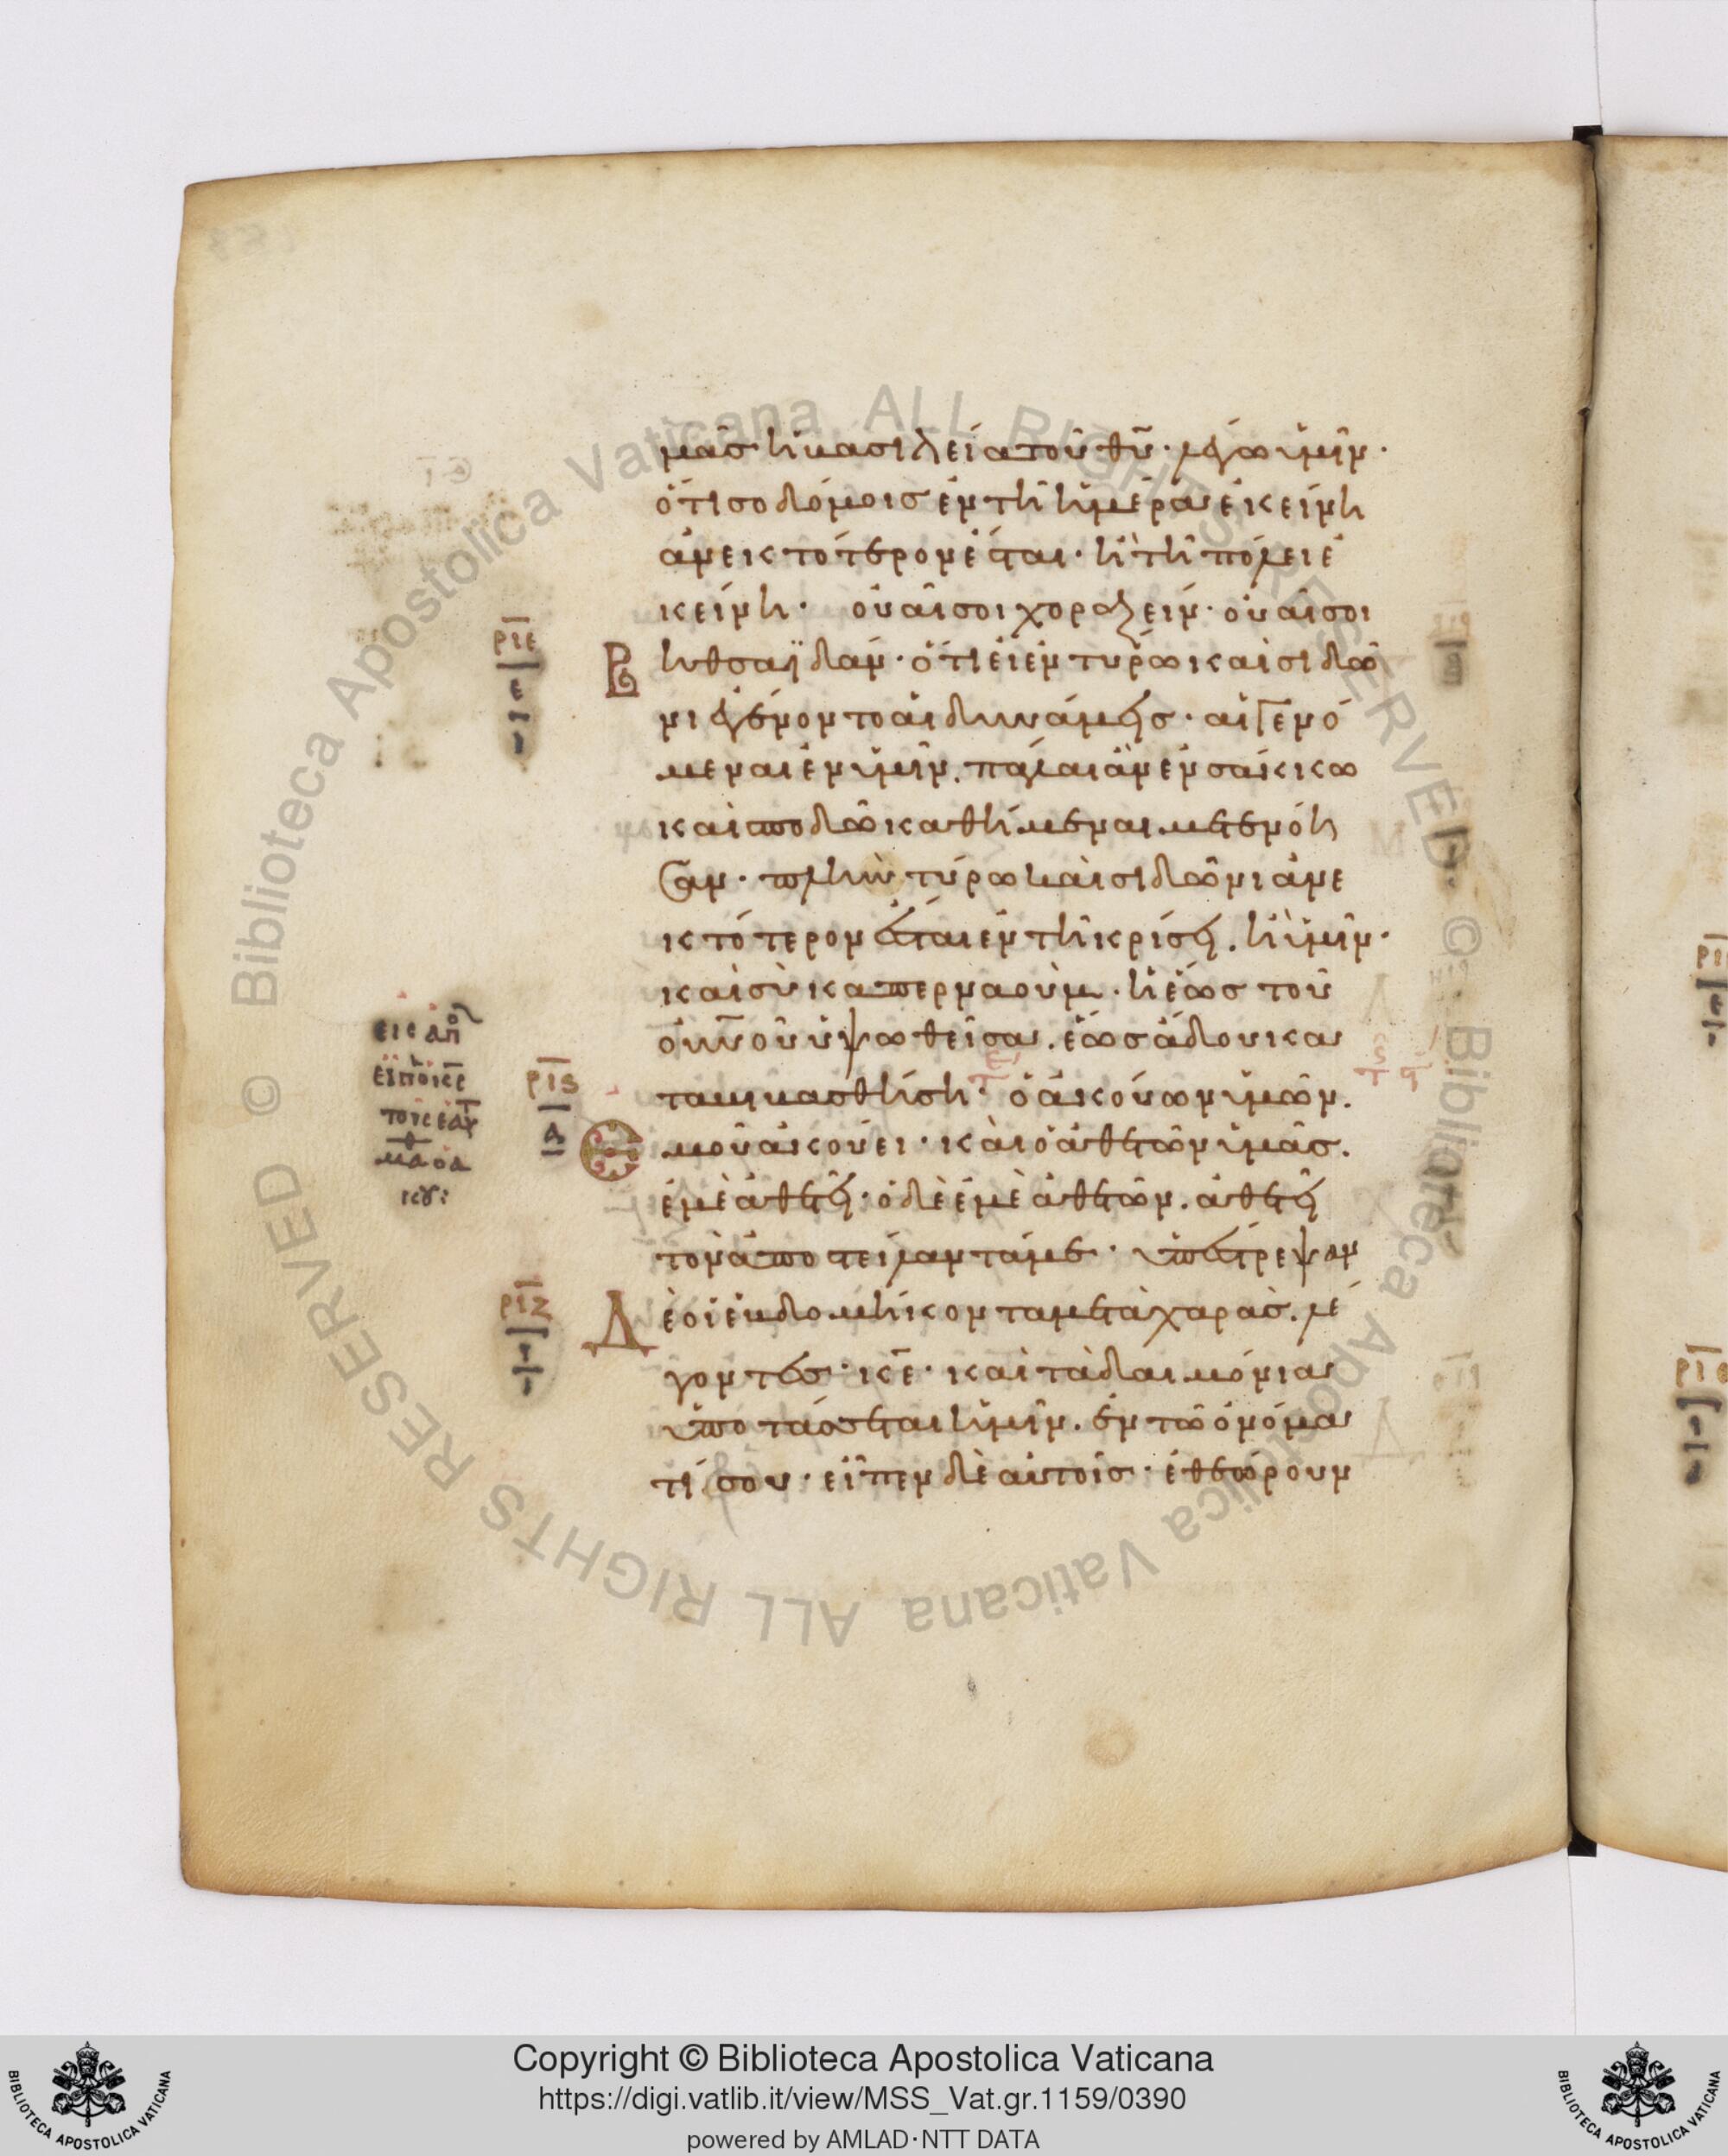 μᾶς ἡ βασιλεία τοῦ θῡ· λέγω ὑμῖν·
ὅτι σοδόμοις ἐν τῆ ἡμέρα ἐκείνη
ἀνεκτότερον ἔσται· ἢ τῆ πόλει ἐ
κείνη· οὐαί σοι χοραζείν· οὐαί σοι
Βηθσαϊδάν· ὅτι εἰ ἐν τύρω καὶ σιδῶ
νι ἐγένοντο αἱ δυνάμεις· αἱ γενό
μεναι ἐν ὑμῖν. πάλαι ἂν ἐν σάκκω
καὶ σποδῶ καθήμεναι μετενόη
σαν· πλὴν τύρω καὶ σιδῶνι ἀνε
κτότερον ἔσται ἐν τῆ κρίσει. ἢ ὑμῖν·
καὶ σὺ καπερναούμ· ἡ ἕως τοῦ
οὐνοῦ ὑψωθεῖσα. ἕως ἅδου κα
ταβιβασθήση· ὁ ἀκούων ὑμῶν.
ρ̅ι̅ε̅
ε
ρ̅ι̅ϛ̅
α
ἐμοῦ ἀκούει· καὶ ὁ ἀθετῶν ὑμᾶς.
ἐμὲ ἀθετεῖ· ὁ δὲ ἐμὲ ἀθετῶν. ἀθετεῖ
τὸν ἀποστείλαντά με· ὑπέστρεψαν
ρ̅ι̅ζ̅
Δὲ οἱ ἑβδομήκοντα μετὰ χαρᾶς. λέ
γοντες· κ̅ε̅· καὶ τὰ δαιμόνια
ὑποτάσσεται ἡμῖν. ἐν τῶ ὀνόμα
τί σου· εἶπεν δὲ αὐτοῖς· ἐθεώρουν
Biblioteca Apostolica Vaticana ALL RIGHTS RESERVED ©
Biblioteca Apostolica Vaticana ALL RIGHTS RESERVED ©
Copyright © Biblioteca Apostolica Vaticana
https://digi.vatlib.it/view/MSS_Vat.gr.1159/0390
powered by AMLAD·NTT DATA
BIBLIOTECA APOSTOLICA VATICANA
BIBLIOTECA APOSTOLICA VATICANA